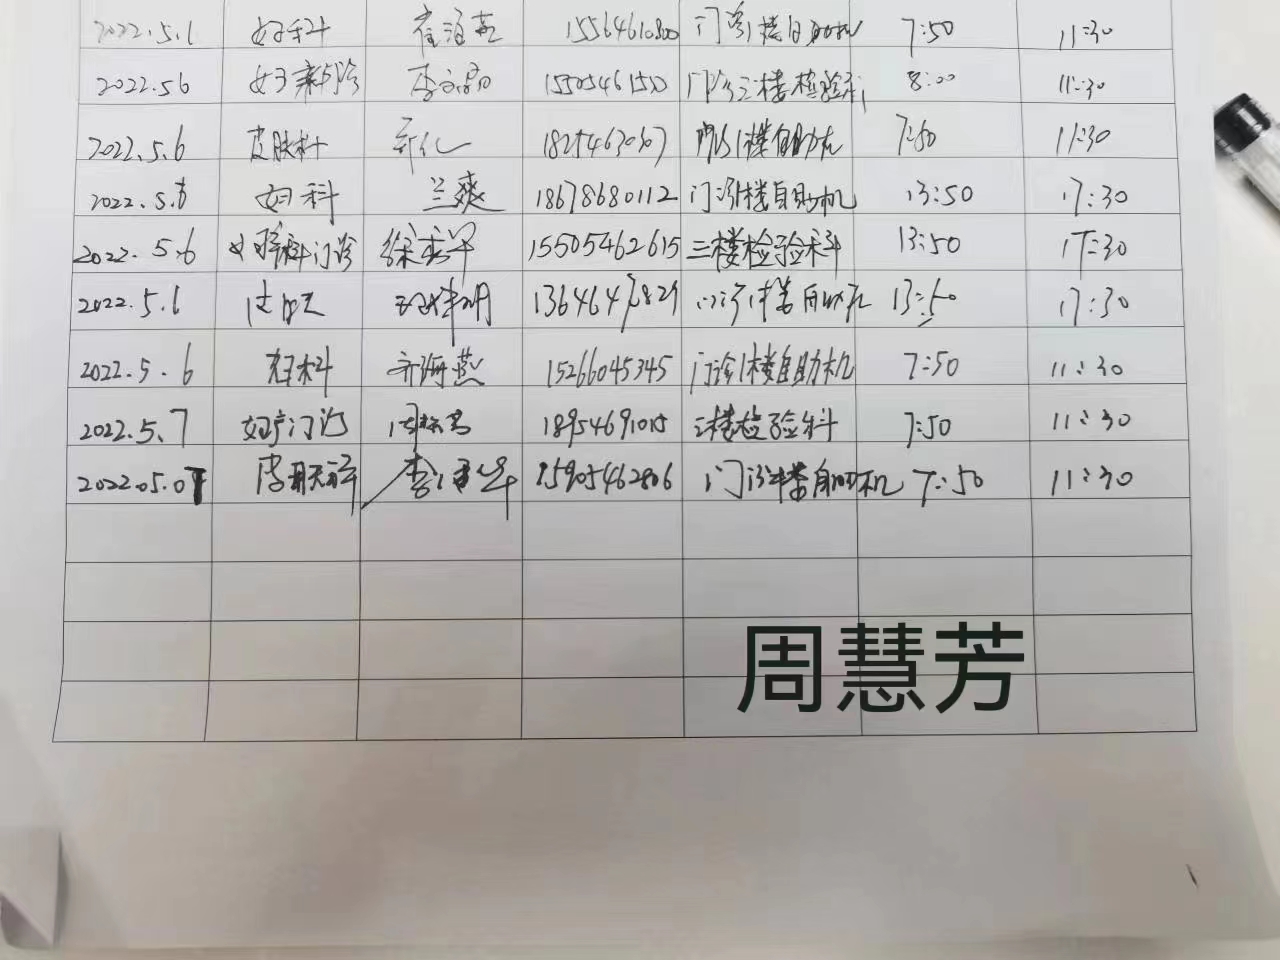 2022.5.1 妇科 15564610800 门诊1楼自助机 7:50 11:30
2022.5.6 门诊三楼检验科 8:00 11:30
2022.5.6 皮肤科 18254630307 门诊1楼自助机 7:50 11:30
2022.5.6 妇科 兰爽 18678680112 门诊1楼自助机 13:50 17:30
2022.5.6 门诊 15505462615 三楼检验科 13:50 17:30
2022.5.6 门诊1楼自助机 13:50 17:30
2022.5.6 妇科 齐海燕 15266045345 门诊1楼自助机 7:50 11:30
2022.5.7 妇产门诊 18954691015 三楼检验科 7:50 11:30
2022.05.07 皮肤科 15905462806 门诊1楼自助机 7:50 11:30
周慧芳